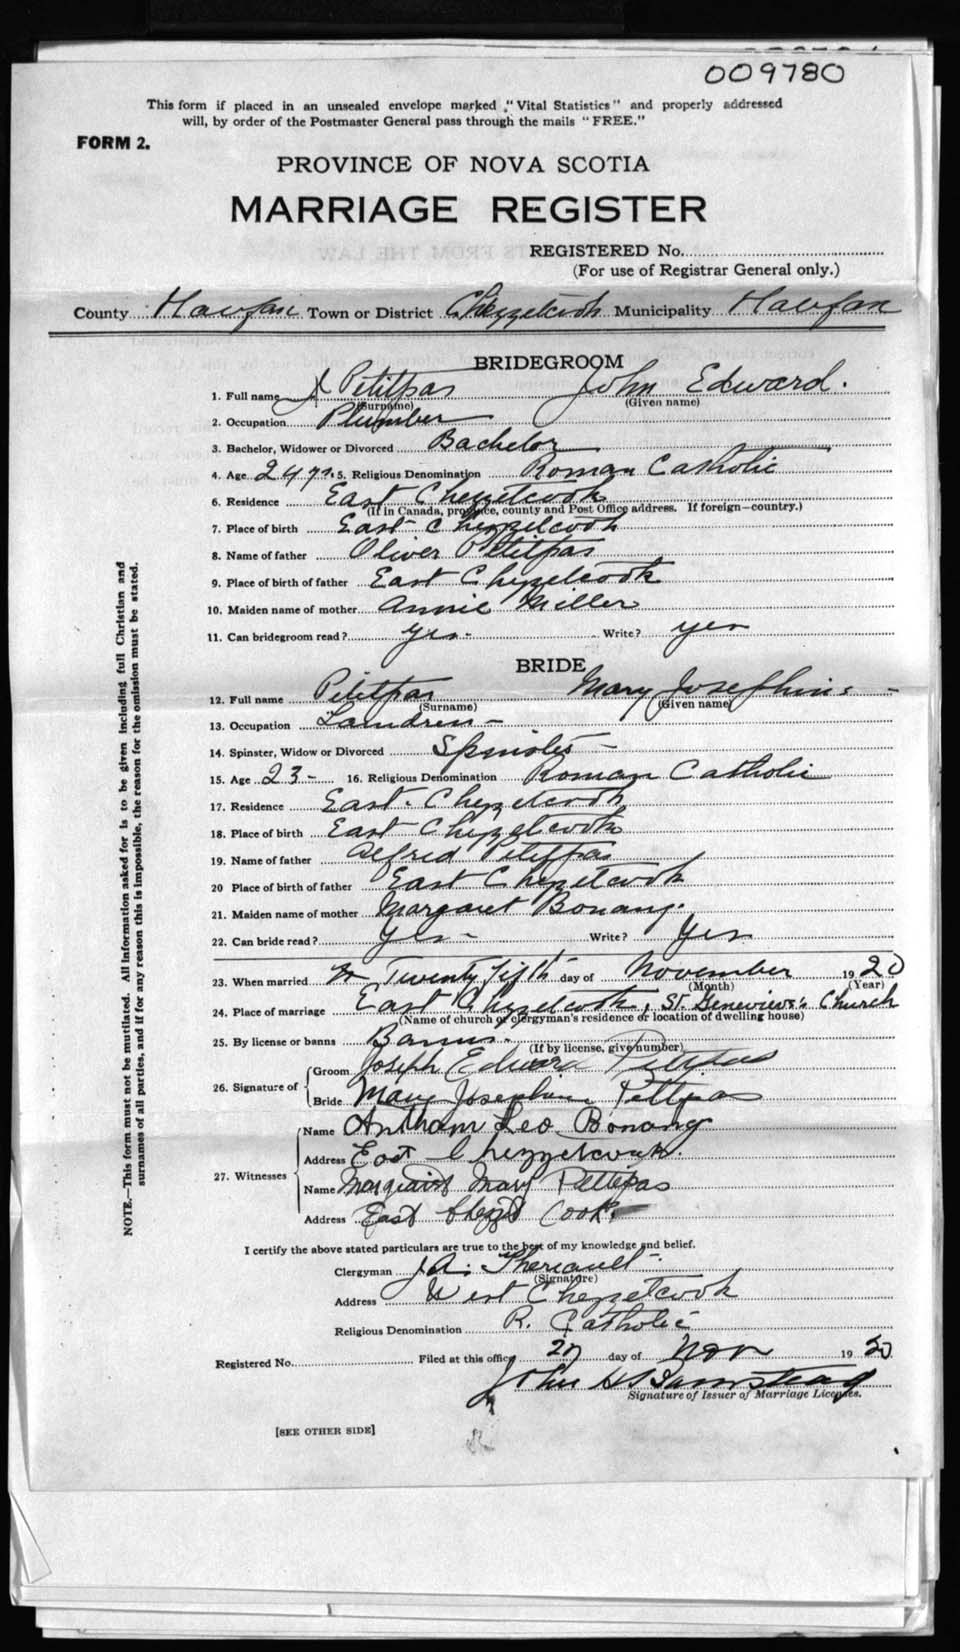 009780
This form if placed in an unsealed envelope marked "Vital Statistics" and properly addressed
will, by order of the Postmaster General pass through the mails "FREE."
FORM 2.
PROVINCE OF NOVA SCOTIA
MARRIAGE REGISTER
REGISTERED No.
(For use of Registrar General only.)
County Halifax Town or District Chezzetcook Municipality Halifax
BRIDEGROOM
1. Full name Petitpas John Edward.
(Surname) (Given name)
2. Occupation Plumber
3. Bachelor, Widower or Divorced Bachelor
4. Age 24 yrs. 5. Religious Denomination Roman Catholic
6. Residence East Chezzetcook
(If in Canada, province, county and Post Office address. If foreign—country.)
7. Place of birth East Chezzetcook
8. Name of father Oliver Petitpas
9. Place of birth of father East Chezzetcook
10. Maiden name of mother Annie Miller
11. Can bridegroom read? Yes - Write? yes
BRIDE
12. Full name Petitpas Mary Josephine -
(Surname) (Given name)
13. Occupation Laundress -
14. Spinster, Widow or Divorced Spinster -
15. Age 23 - 16. Religious Denomination Roman Catholic
17. Residence East. Chezzetcook
18. Place of birth East Chezzetcook
19. Name of father Alfred Petitpas
20 Place of birth of father East Chezzetcook
21. Maiden name of mother Margaret Bonang.
22. Can bride read? Yes - Write? Yes
23. When married Twenty fifth day of November 1920
(Month) (Year)
24. Place of marriage East Chezzetcook, St. Genevieve's Church
(Name of church or clergyman's residence or location of dwelling house)
25. By license or banns Banns.
(If by license, give number)
26. Signature of Groom Joseph Edward Petitpas
Bride Mary Josephine Pettpas
27. Witnesses Name Leo Bonang
Address East Chezzetcook.
Name Mary Pettipas
Address East Chezzet Cook.
I certify the above stated particulars are true to the best of my knowledge and belief.
Clergyman J. A. Theriault -
(Signature)
Address West Chezzetcook
Religious Denomination R. Catholic
Registered No. Filed at this office 27 day of Nov 1920.
John H
Signature of Issuer of Marriage Licenses.
[SEE OTHER SIDE]
NOTE.—This form must not be mutilated. All information asked for is to be given including full Christian and
surnames of all parties, and if for any reason this is impossible, the reason for the omission must be stated.